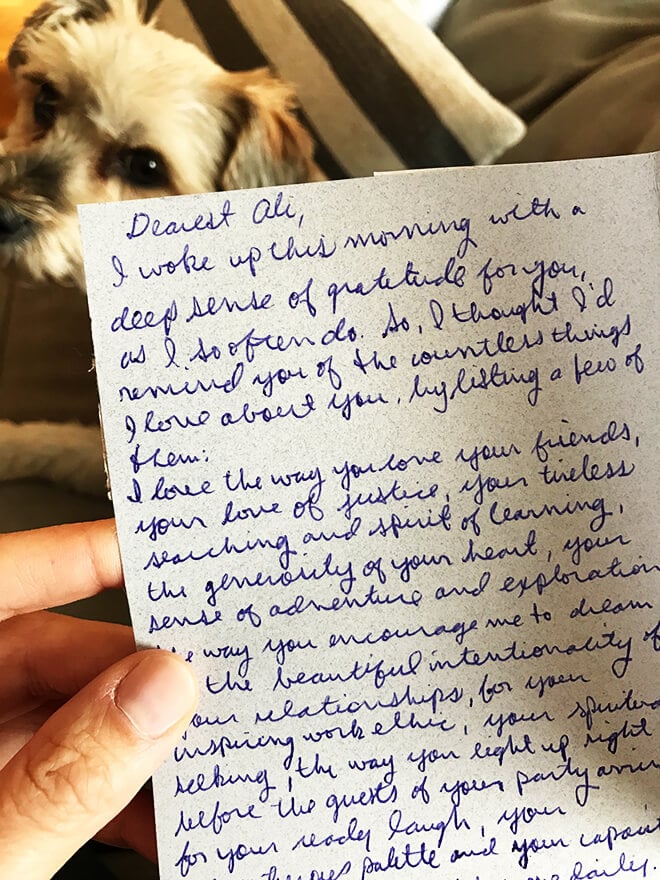 Dearest Ali,
I woke up this morning with a
deep sense of gratitude for you,
as I so often do. So, I thought I'd
remind you of the countless things
I love about you, by listing a few of
them:
I love the way you love your friends,
your love of justice, your tireless
searching and spirit of learning,
the generosity of your heart, your
sense of adventure and exploration
way you encourage me to dream
the beautiful intentionality of
your relationships, for your
inspiring work ethic, your
seeking, the way you light up right
before the guests of your party
for your ready laugh, your
palette and your
daily.